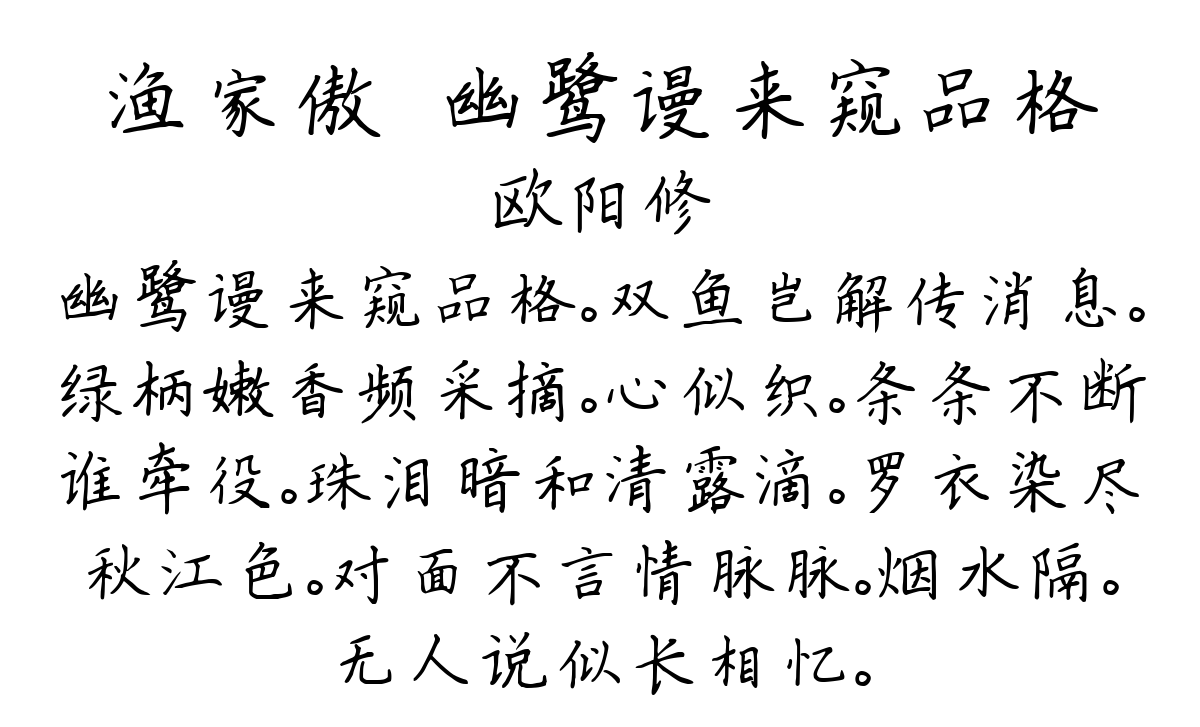 渔家傲 幽鹭谩来窥品格
欧阳修
幽鹭谩来窥品格。双鱼岂解传消息。
绿柄嫩香频采摘。心似织。条条不断
谁牵役。珠泪暗和清露滴。罗衣染尽
秋江色。对面不言情脉脉。烟水隔。
无人说似长相忆。